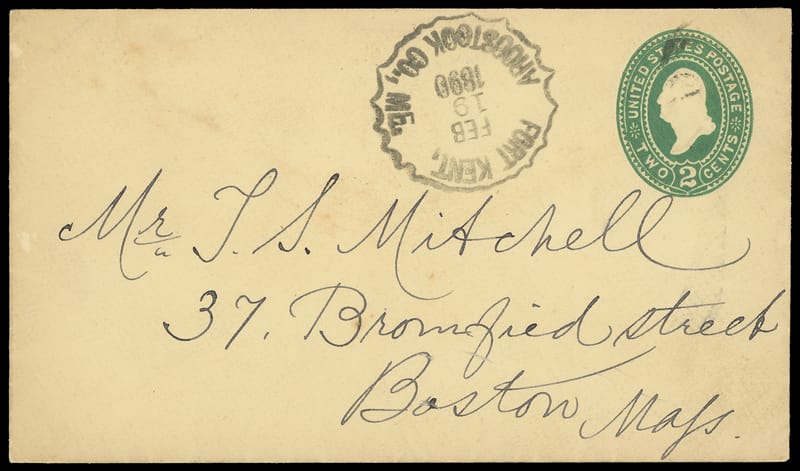 FORT KENT,
AROOSTOOK CO., ME.
FEB
19
1890
UNITED STATES POSTAGE
TWO 2 CENTS
Mr. T. S. Mitchell
37. Bromfied street
Boston Mass.